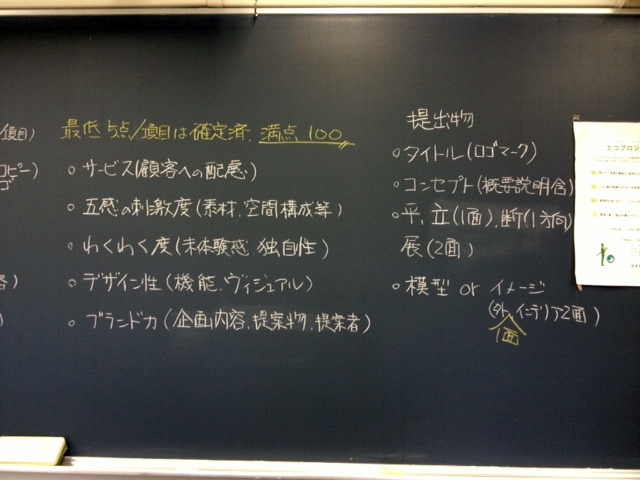 項目)
コピー)
ゴ
最低5点/項目は確定済、満点100
○サービス(顧客への配慮)
○五感の刺激度(素材、空間構成等)
○わくわく度(未体験感 独自性)
○デザイン性(機能、ヴィジュアル)
○ブランド力(企画内容、提案物、提案者)
提出物
○タイトル(ロゴマーク)
○コンセプト(概要説明含)
○平、立(1面)、断(1方向)
展(2面)
○模型 or イメージ
(外、インテリア2面)
1面
エコプロジ